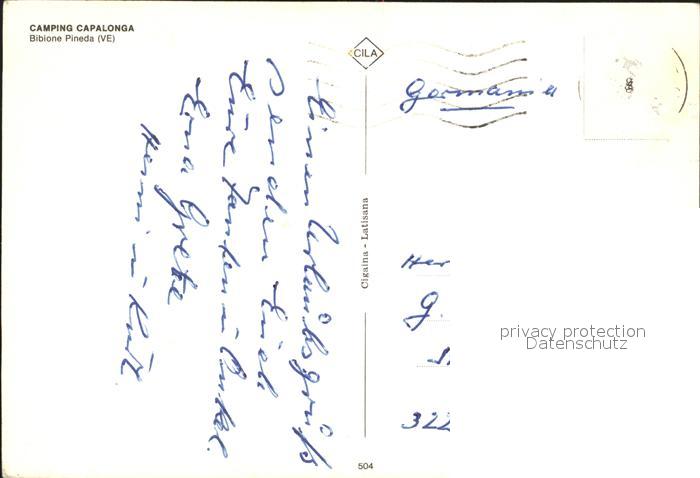 CAMPING CAPALONGA
Bibione Pineda (VE)
CILA
Einen Urlaubsgruß
senden Euch
Eure Tanten u. Onkel
Erna Grete
Henni u. Kurt
Cigaina - Latisana
Germania
Her
G.
322
504
privacy protection
Datenschutz